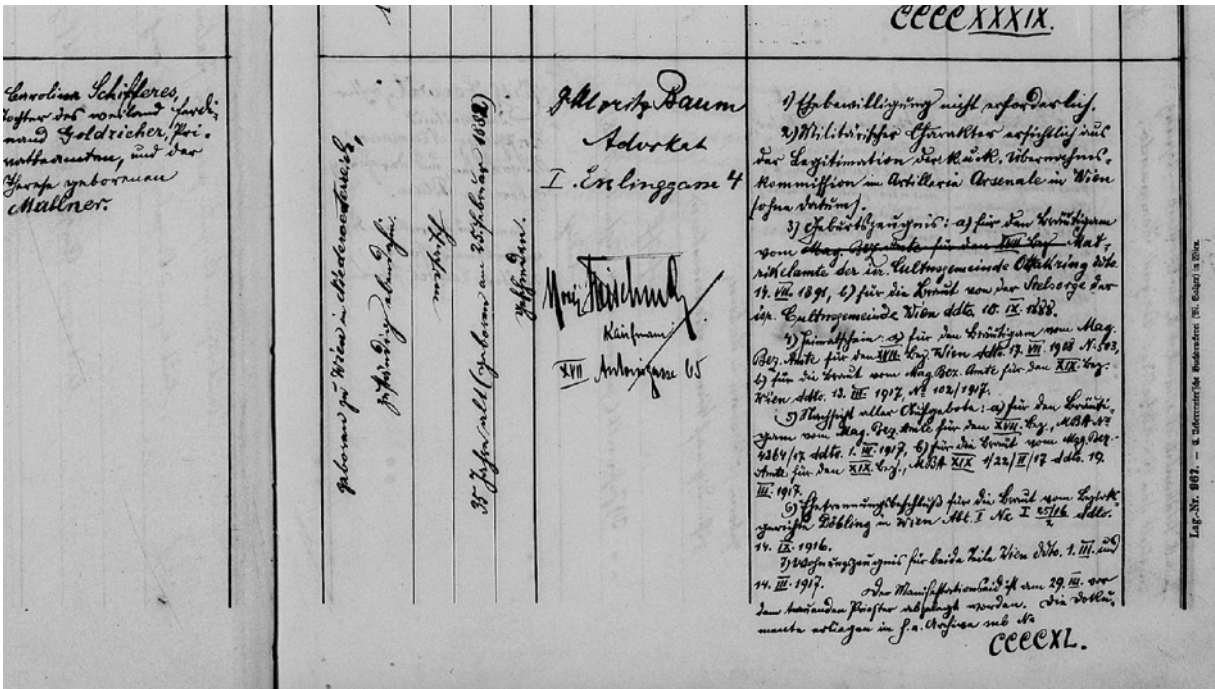 CCCCXXXIX.
Carolina Schifferes,
Tochter des weiland Ferdi-
nand Goldricher, Pri-
vatbeamten, und der
Therese geborenen
Mallner.
geboren zu Wien in Niederoesterreich,
zuständig ebendahin.
mosaisch
35 Jahre alt (geboren am 25. Februar 1882)
geschieden.
Dr. Moritz Baum
Advokat
I. Esslinggasse 4
Kaufmann
XVII 65
1) Ehebewilligung nicht erforderlich.
2) Militärischer Charakter ersichtlich aus
der Legitimation der k.u.k. Übernahms-
kommission im Artillerie Arsenale in Wien
(ohne Datum).
3) Geburtszeugnis: a) für den Bräutigam
vom Mag. Bez. Amte für den XVII Bez. Mat-
rikelamte der isr. Cultusgemeinde Ottakring ddto.
14. VII. 1891, b) für die Braut von der Seelsorge der
isr. Cultusgemeinde Wien ddto. 10. IX. 1888.
4) Heimatschein: a) für den Bräutigam vom Mag.
Bez. Amte für den XVII. Bez. Wien ddto. 17. VII. 1908 N. 503,
b) für die Braut vom Mag. Bez. Amte für den XIX. Bez.
Wien ddto. 13. III. 1917, No 102/1917.
5) Nachsicht aller Aufgebote: a) für den Bräuti-
gam vom Mag. Bez. Amte für den XVII. Bez., MBA No
4264/17 ddto. 1. III. 1917, b) für die Braut vom Mag. Bez.-
Amte für den XIX. Bez., MBA XIX 1/22/II/17 ddto. 19.
III. 1917.
6) Ehetrennungsbeschluß für die Braut vom Bezirks-
gerichte Döbling in Wien Abt. I Nc I 25/16/2 ddto.
14. IX. 1916.
7) Wohnungszeugnis für beide Teile Wien ddto. 1. III. und
14. III. 1917. Der Manifestationseid ist am 29. III. vor
dem trauenden Priester abgelegt worden. Die Doku-
mente erliegen im h.a. Archive sub No
CCCCXL.
Lag.-Nr. 967. —